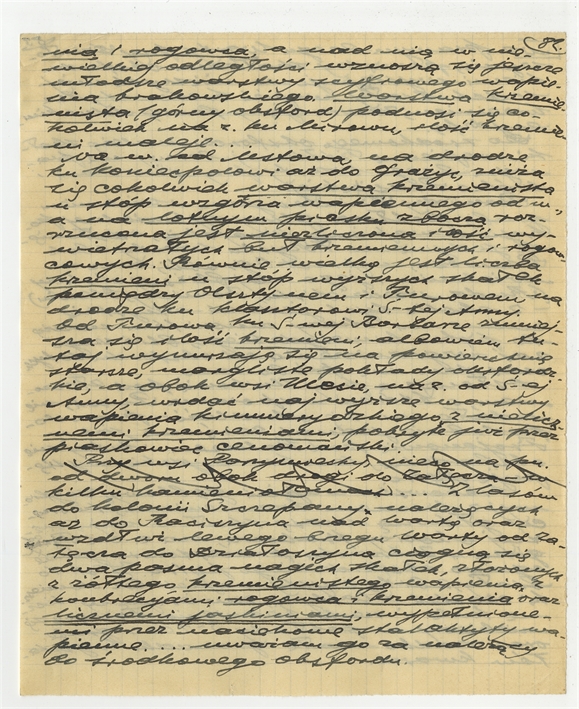 82.
nia i rogowca, a nad nią w nie-
wielkiej odległości wznoszą się jeszcze
młodsze warstwy scyfiowego wapie-
nia krakowskiego. Warstwa krzemie-
nista (górny oksford) podnosi się co-
kolwiek na z. ku Mirowu, ilość krzemie-
ni maleje...
Na w. od Mstowa, na drodze
ku Koniecpolowi aż do Grażyc, zniża
się cokolwiek warstwa krzemienista
u stóp wzgórza wapiennego od w.,
a na lotnym piasku zbocza roz-
rzucona jest niezliczona ilość wy-
wietrzałych buł krzemiennych i rogow-
cowych. Równie wielką jest liczba
krzemieni u stóp wyższych skałek
pomiędzy Olsztynem i Turowem na
drodze ku klasztorowi S-tej Anny.
Od Turowa, ku S-wej Barbarze zmniej-
sza się ilość krzemieni, albowiem tu-
taj wynurzają się na powierzchnię
starsze, margliste pokłady oksfordz-
kie, a obok wsi Ulesie, na z. od S-ej
Anny, widać najwyższe warstwy
wapienia krinneryckiego z nielicz-
nemi krzemieniami, pokryte już przez
piaskowiec cenomański.
Przy wsi na pn.
od dworu obok do
kilku kamieniołomach.... Z lasów
do kolonii Szczepany, należących
aż do Raciszyna nad Wartą oraz
wzdłuż lewego brzegu Warty od Za-
łęcza do Działoszyna ciągną się
dwa pasma nagich skałek, złożonych
z żółtego krzemienistego wapienia, z
konkrecjami rogowca, krzemienia oraz
licznemi jaskiniami, wypełnione-
mi przez naciekowe stalaktyty wa-
pienne.... uważam go za należący
do środkowego oksfordu.